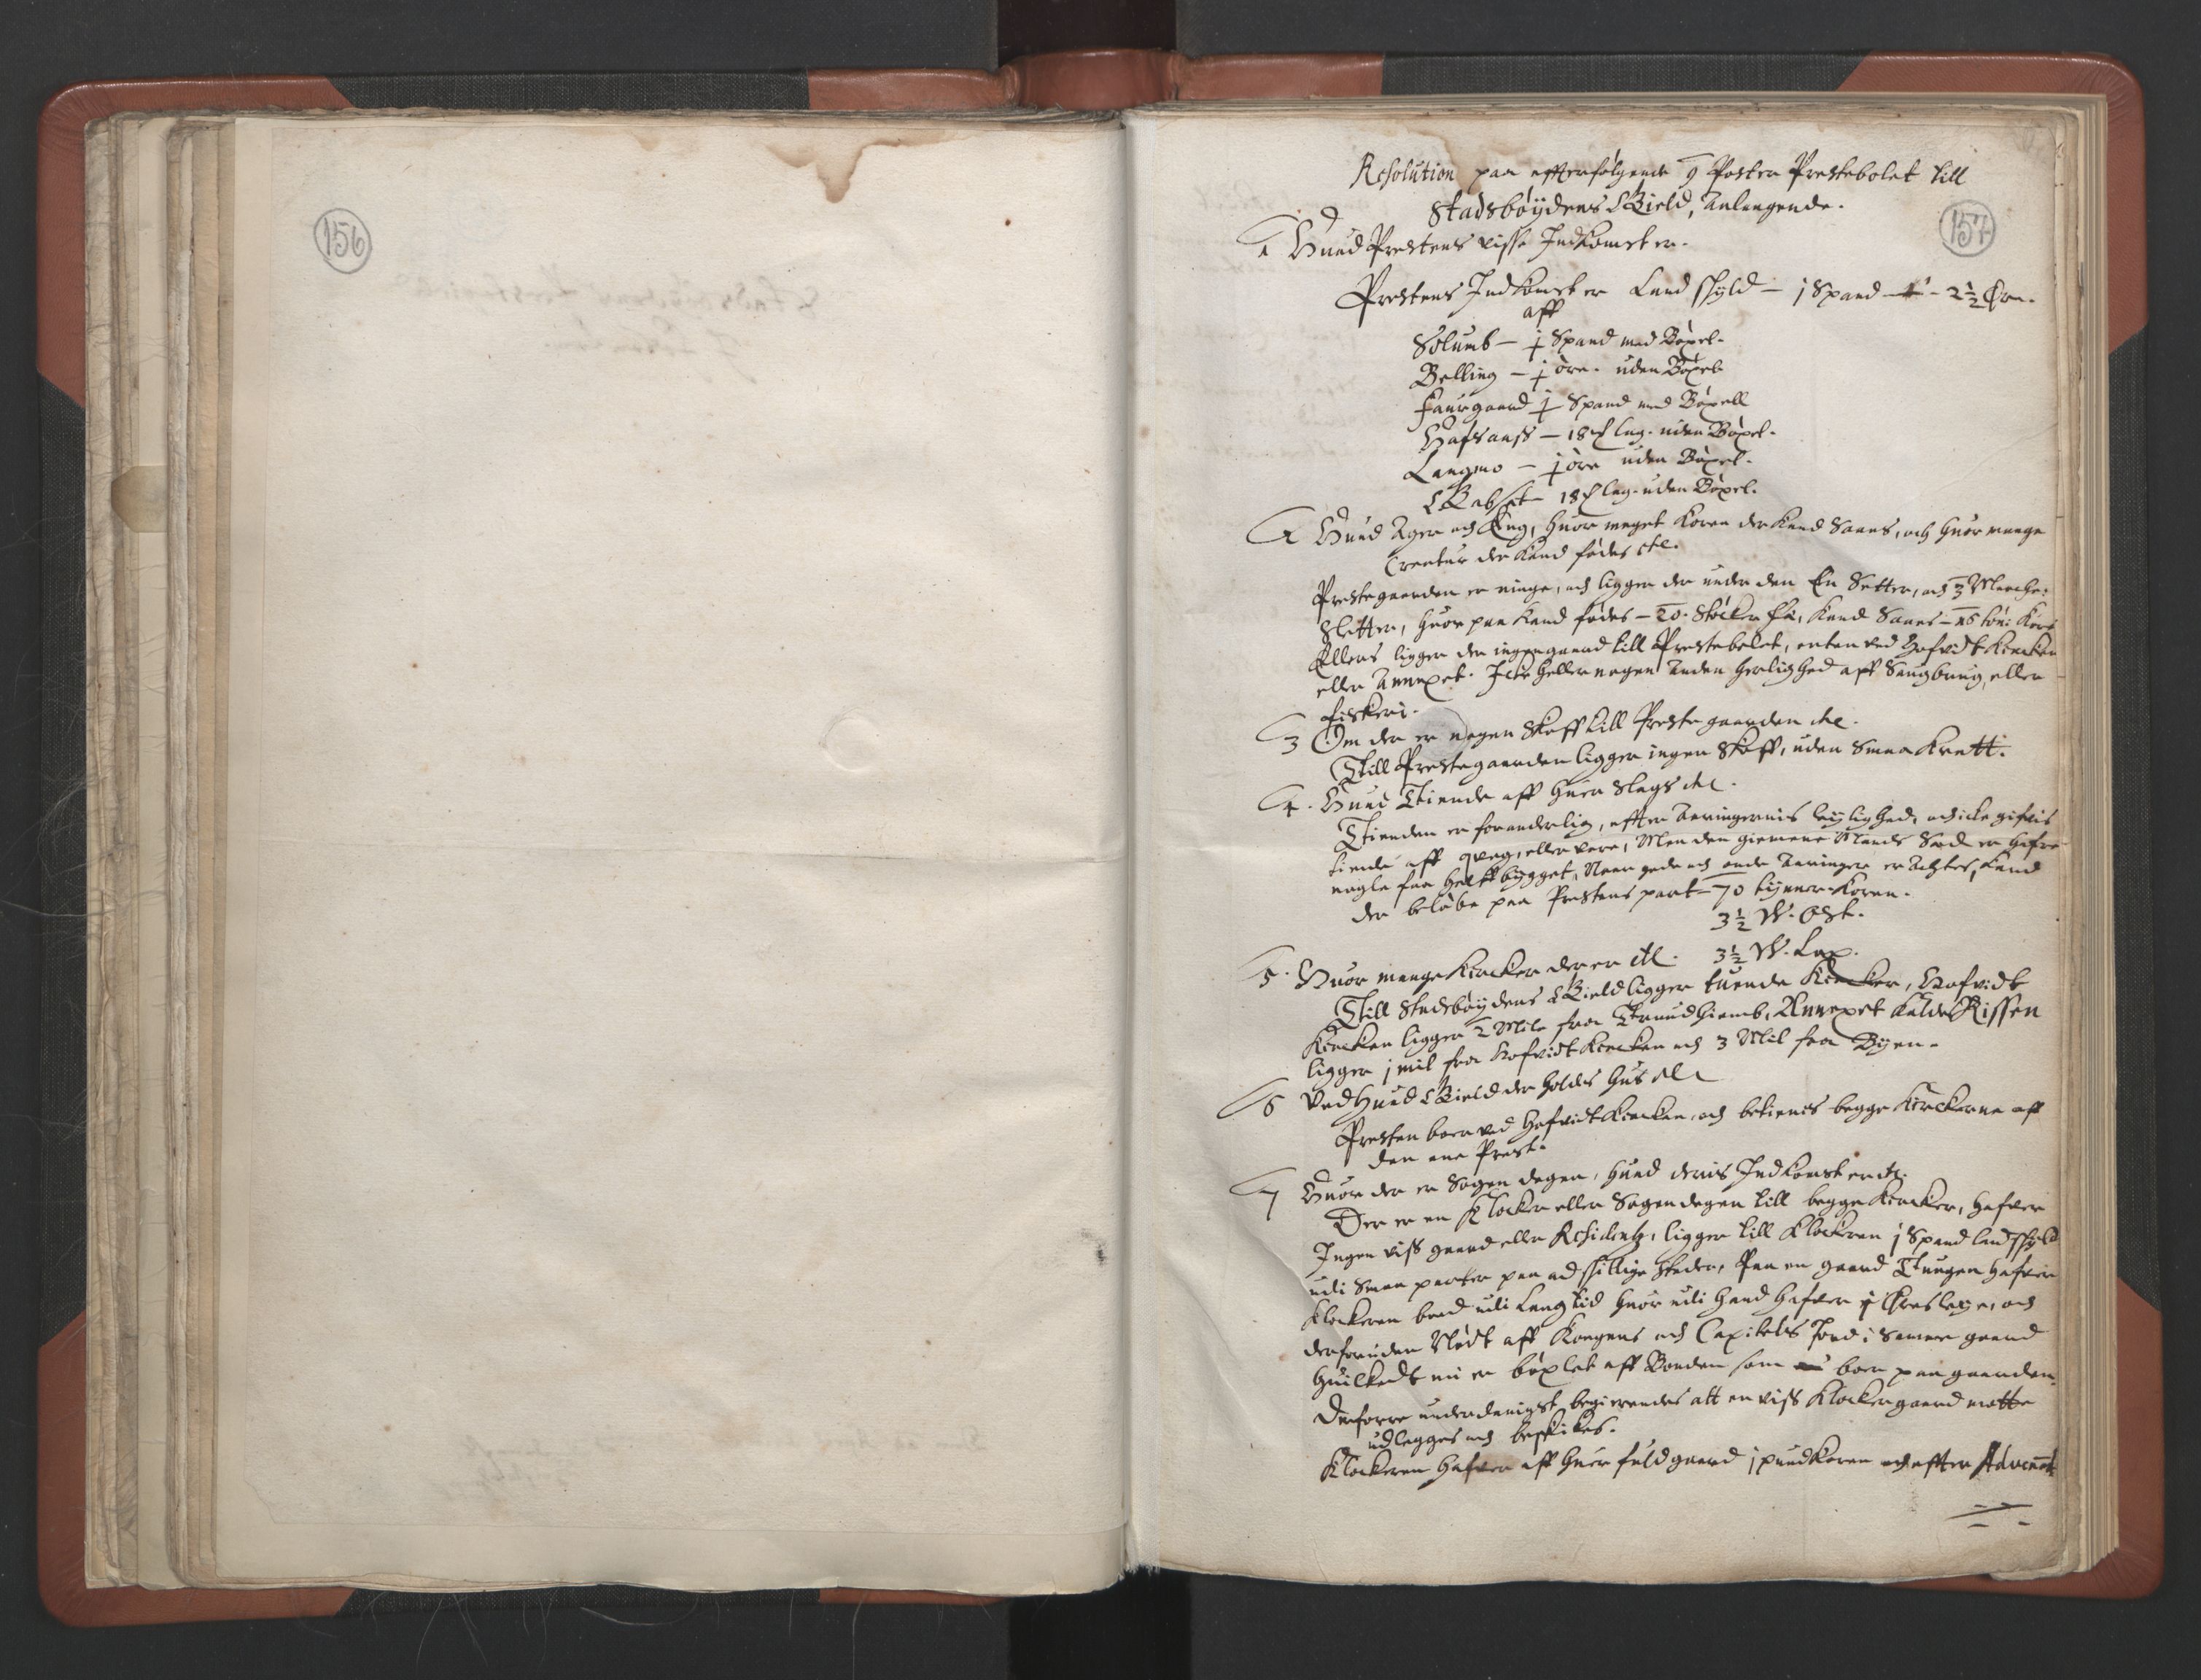 156
157
Resolution paa effterfølgende 9 Poster Prestebolet till
Stadsbøydens Gield, Anlangende.
1 Huad Prestens visse Indkomst er.
Prestens Indkomst er Landskyld – j Spand – 2½ Øre.
aff
Solumb – j Spand med Bøxel.
Belling – j øre. uden Bøxel.
Faurgaard j Spand med Bøxell
Hafsaass – 18 lag. uden Bøxel.
Langmo – j øre uden Bøxel.
18 lag. uden Bøxel.
2 Huad Ager och Eng, huor meget Korn der kand Saaes, och huor mange
Creatur der kand fødes etc.
Prestegaarden er ringe, och ligger der under den En Setter, och 3 Marche:
Sletter, huor paa kand fødes – 20. Støcker fæ, kand Saaes – 15 tøn: Korn
Ellers ligger der ingen gaard till Prestebolet, enten ved Hofvidt Kircken
eller Annexet. Icke heller nogen Anden herlighed aff Saugbrug, eller
fiskeri.
3 Om der er nogen Skoff till Prestegaarden etc.
Till Prestegaarden ligger ingen Skoff, uden Smaa Kratt.
4. Huad Tiende aff huer Slags etc.
Tienden er foranderlig, effter Aaringernis leylighed, och icke gifvis
tiende aff qveg, eller vare, Men den giemene Mands Sæd er hafre
nogle faa helft bygget, Naar gode och onde Aaringer er Achtes, kand
der beløbe paa Prestens part – 70 tynner Korn.
3½ W. Ost.
5. Huor mange Kircker der er etc. 3½ W. Lax.
Till Stadsbøydens Gield ligger tuende Kircker, Hofvidt
Kircken ligger 2 Mile fra Trundhiemb, Annexet kaldes Rissen
ligger j mil fra Hofvidt Kircken och 3 Mil fra Byen.
6 Ved huad Gield der holdes hus etc
Presten boer ved Hofvidt Kircken, och betienis begge Kirckerne aff
den ene Prest.
7 Huor der er Sogen degen, huad deris Indkomst er etc.
Der er en Klocker eller Sogendegen till begge Kircker, hafver
Ingen viss gaard eller Residentz, ligger till Klockeren j Spand landskyld
udi Smaa parter paa adskillige steder, Paa en gaard Tungen hafver
Klockeren boed udi lang tid huor udi hand hafver j Øresleye, och
derforuden Nødt aff Kongens och Capitels Jord i Samme gaard
huilkedt nu er bøxlet aff Bonden som boer paa gaarden.
Derforre underdanigst begierendes att en viss Klockergaard motte
udlegges och beskickes.
Klockeren hafver aff huer fuld gaard j pund Korn och effter Advenant